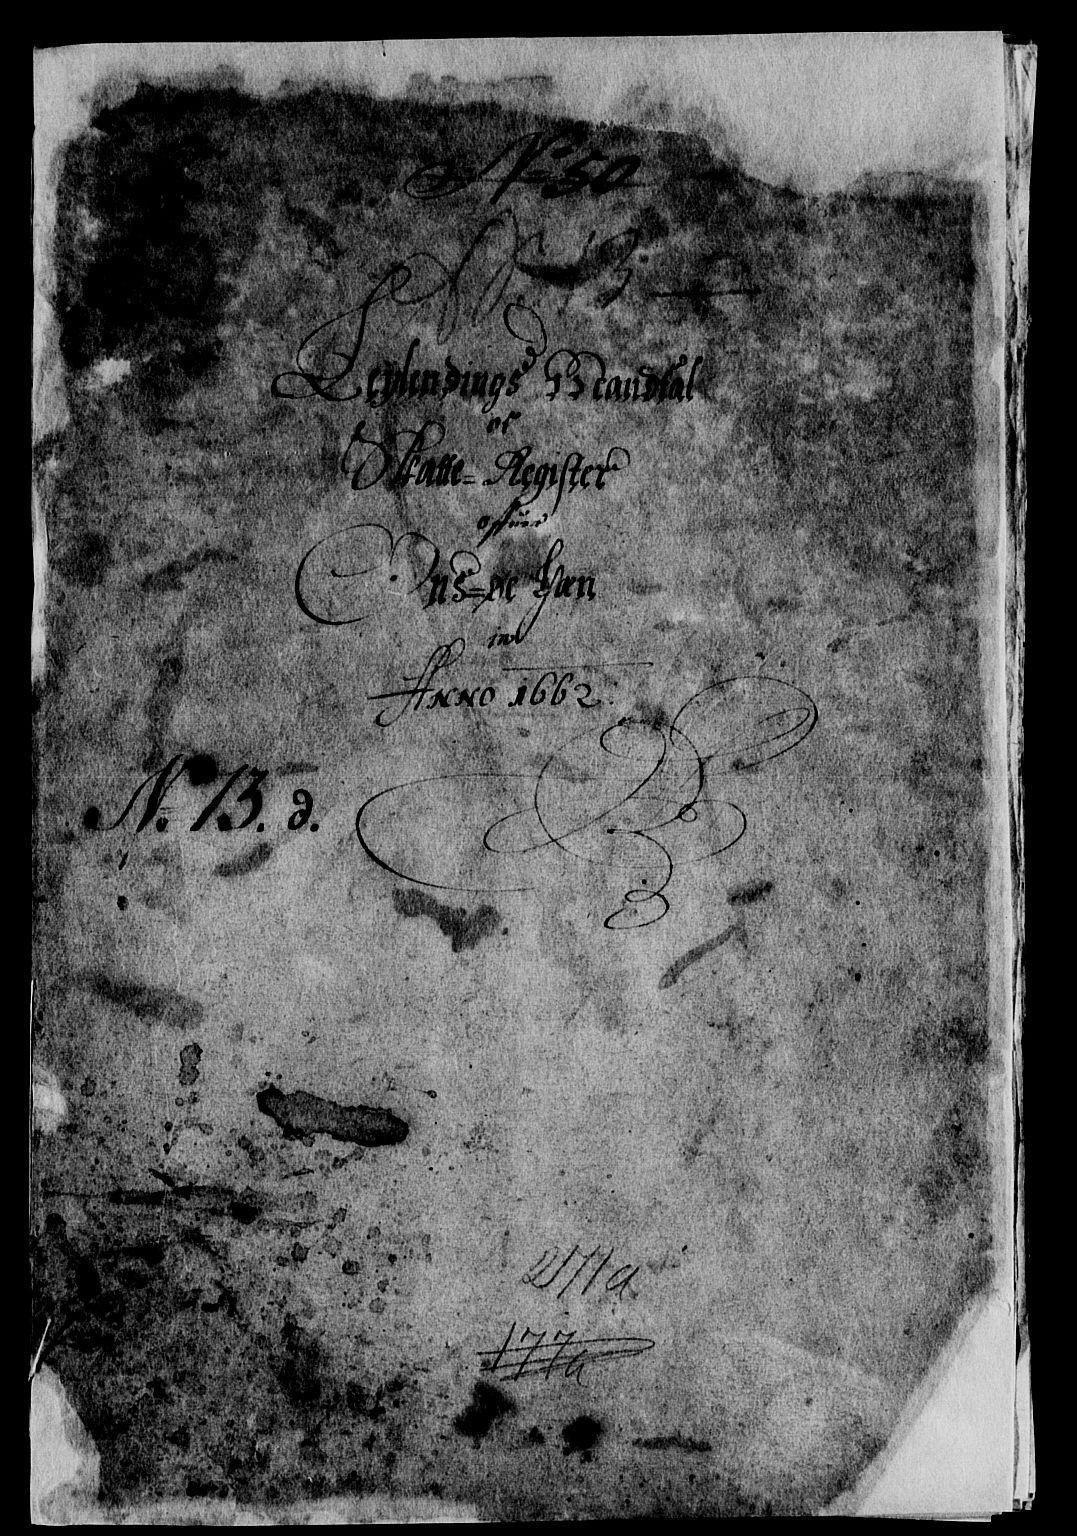 No 50
Leylendings Mandtal
oc
Skatte=Register
offuer
Uns=øe Læn
in
Anno 1662.
N. 13. d.
2171a
177a